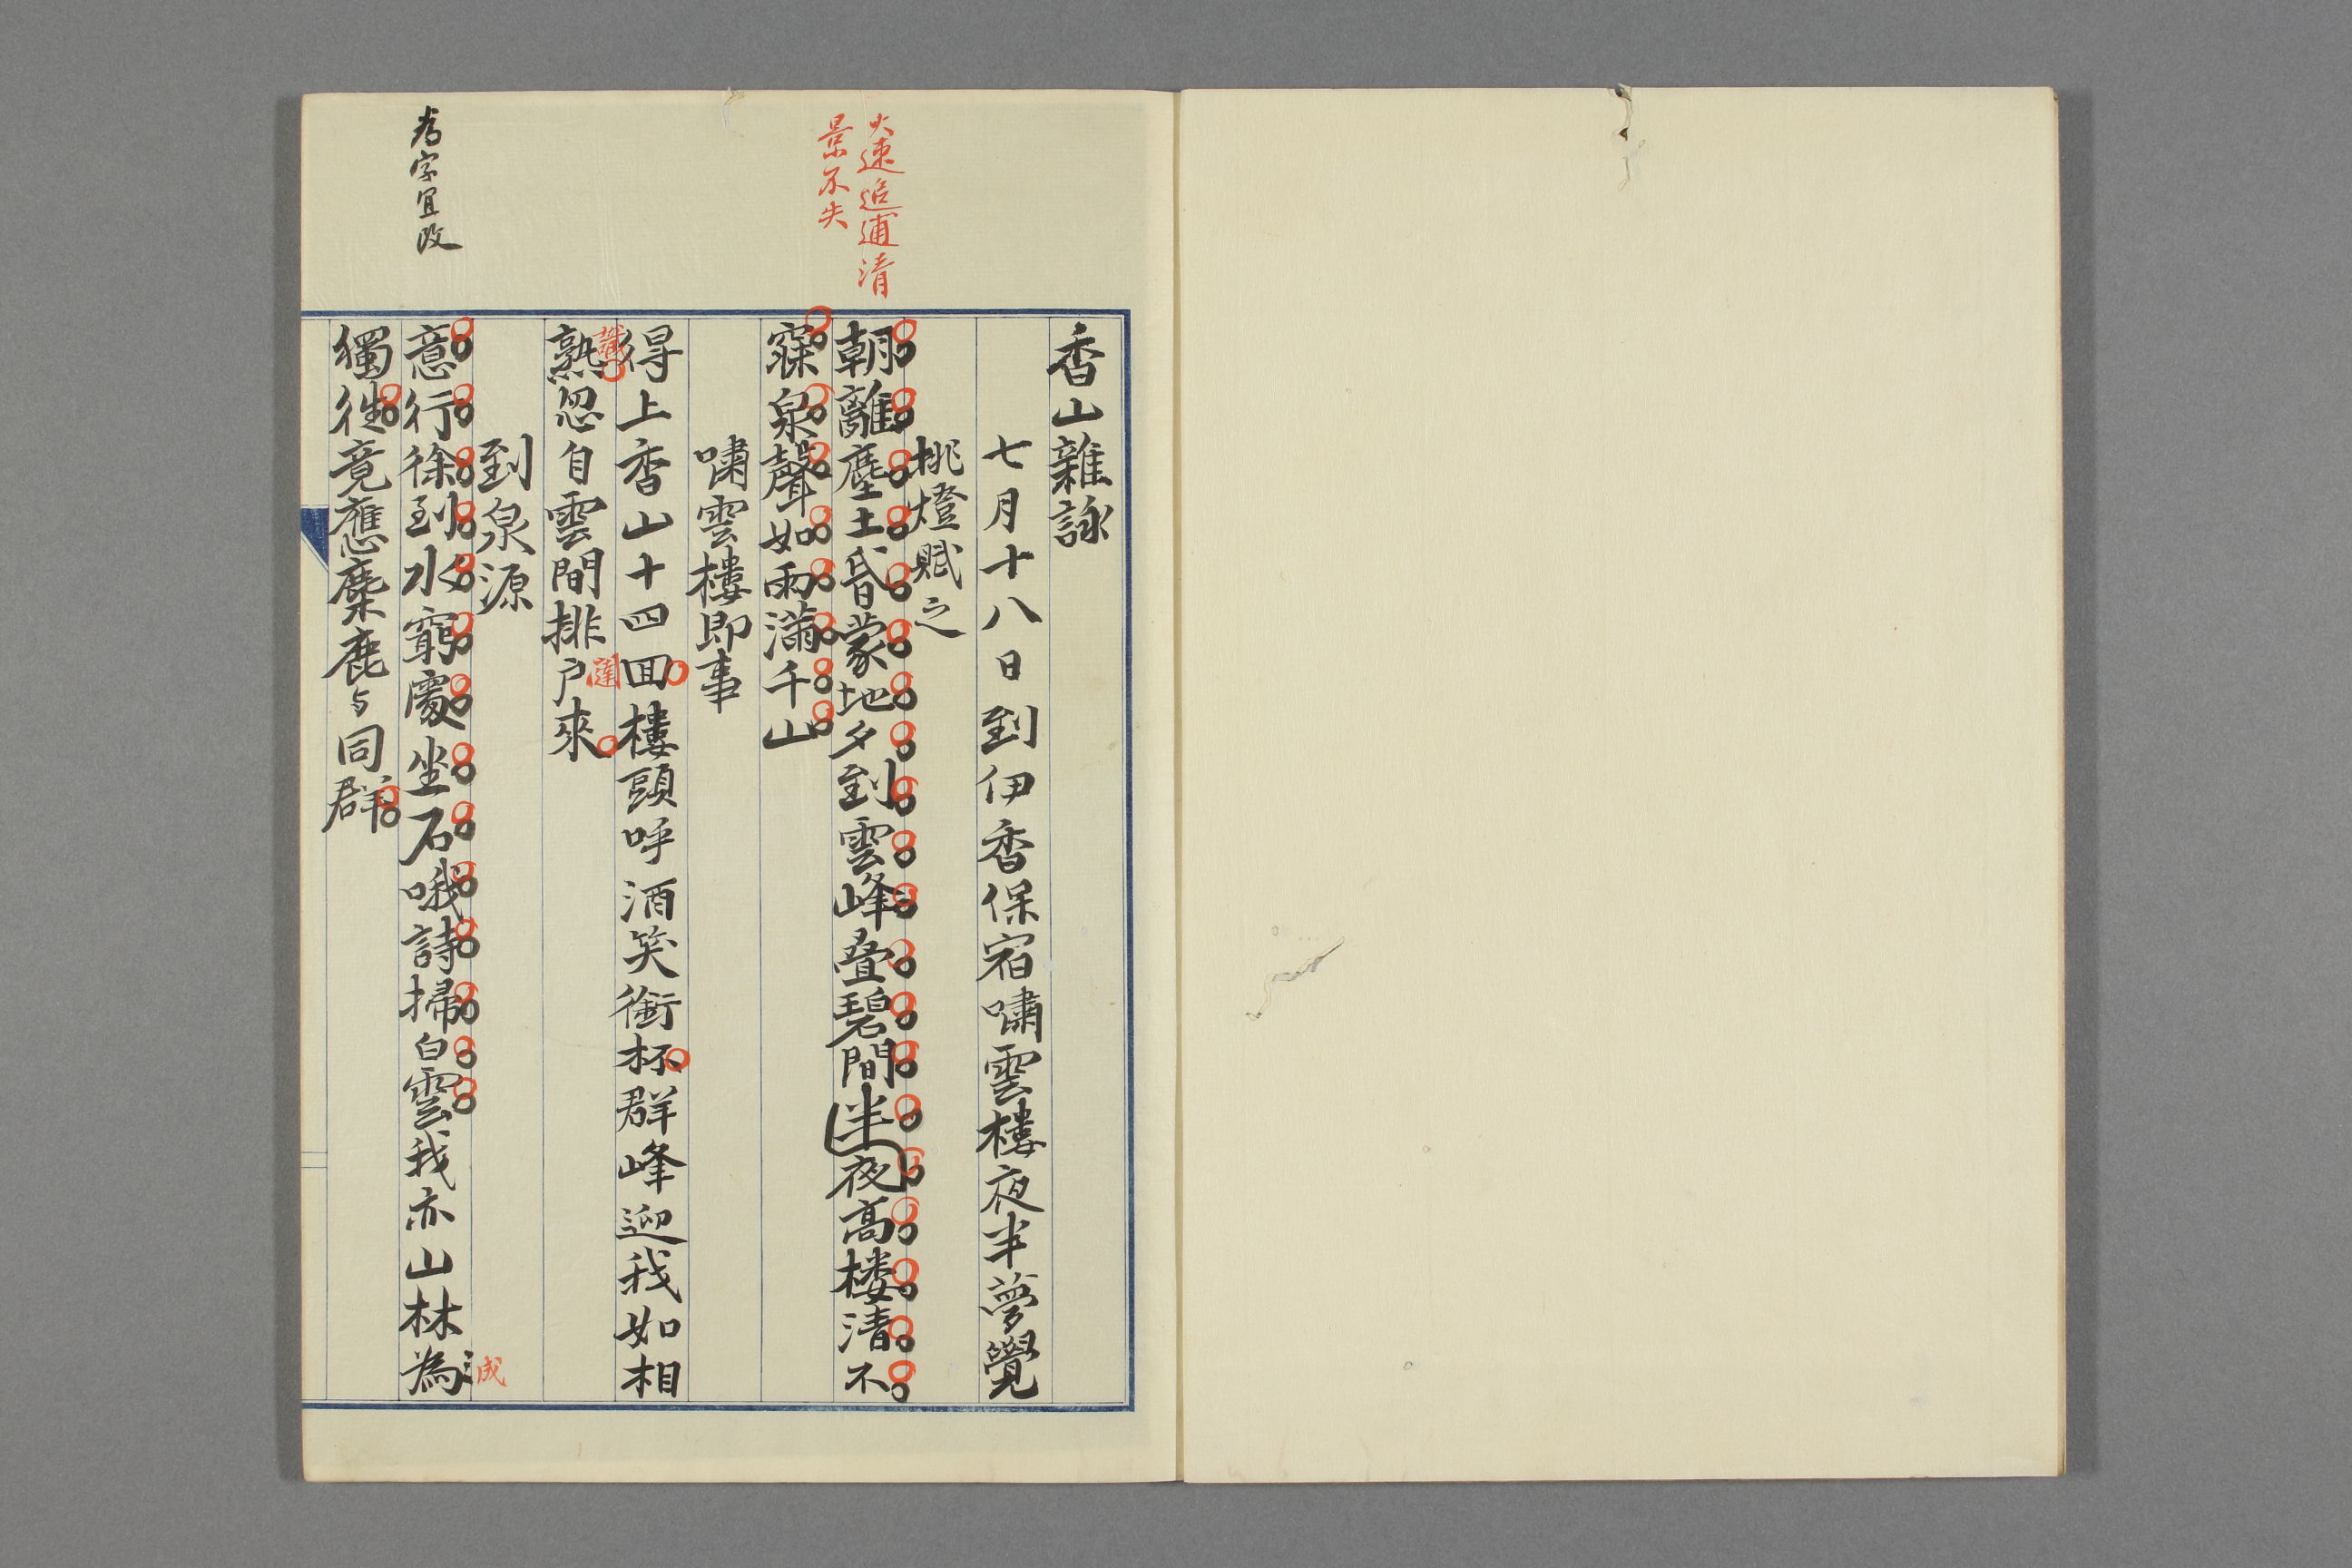 火速追逋清
景不失
為字宜改
香山雜詠
七月十八日到伊香保宿嘯雲樓夜半夢覺
挑燈賦之
朝離塵土昏蒙地夕到雲峰疊碧間半夜高樓清不
寐泉聲如雨滿千山
嘯雲樓即事
得上香山十四回樓頭呼酒笑銜杯群峰迎我如相
熟忽自雲間排戶來
識
闥
到泉源
意行徐到水窮處坐石哦詩掃白雲我亦山林為
成
獨往竟應麋鹿与同群